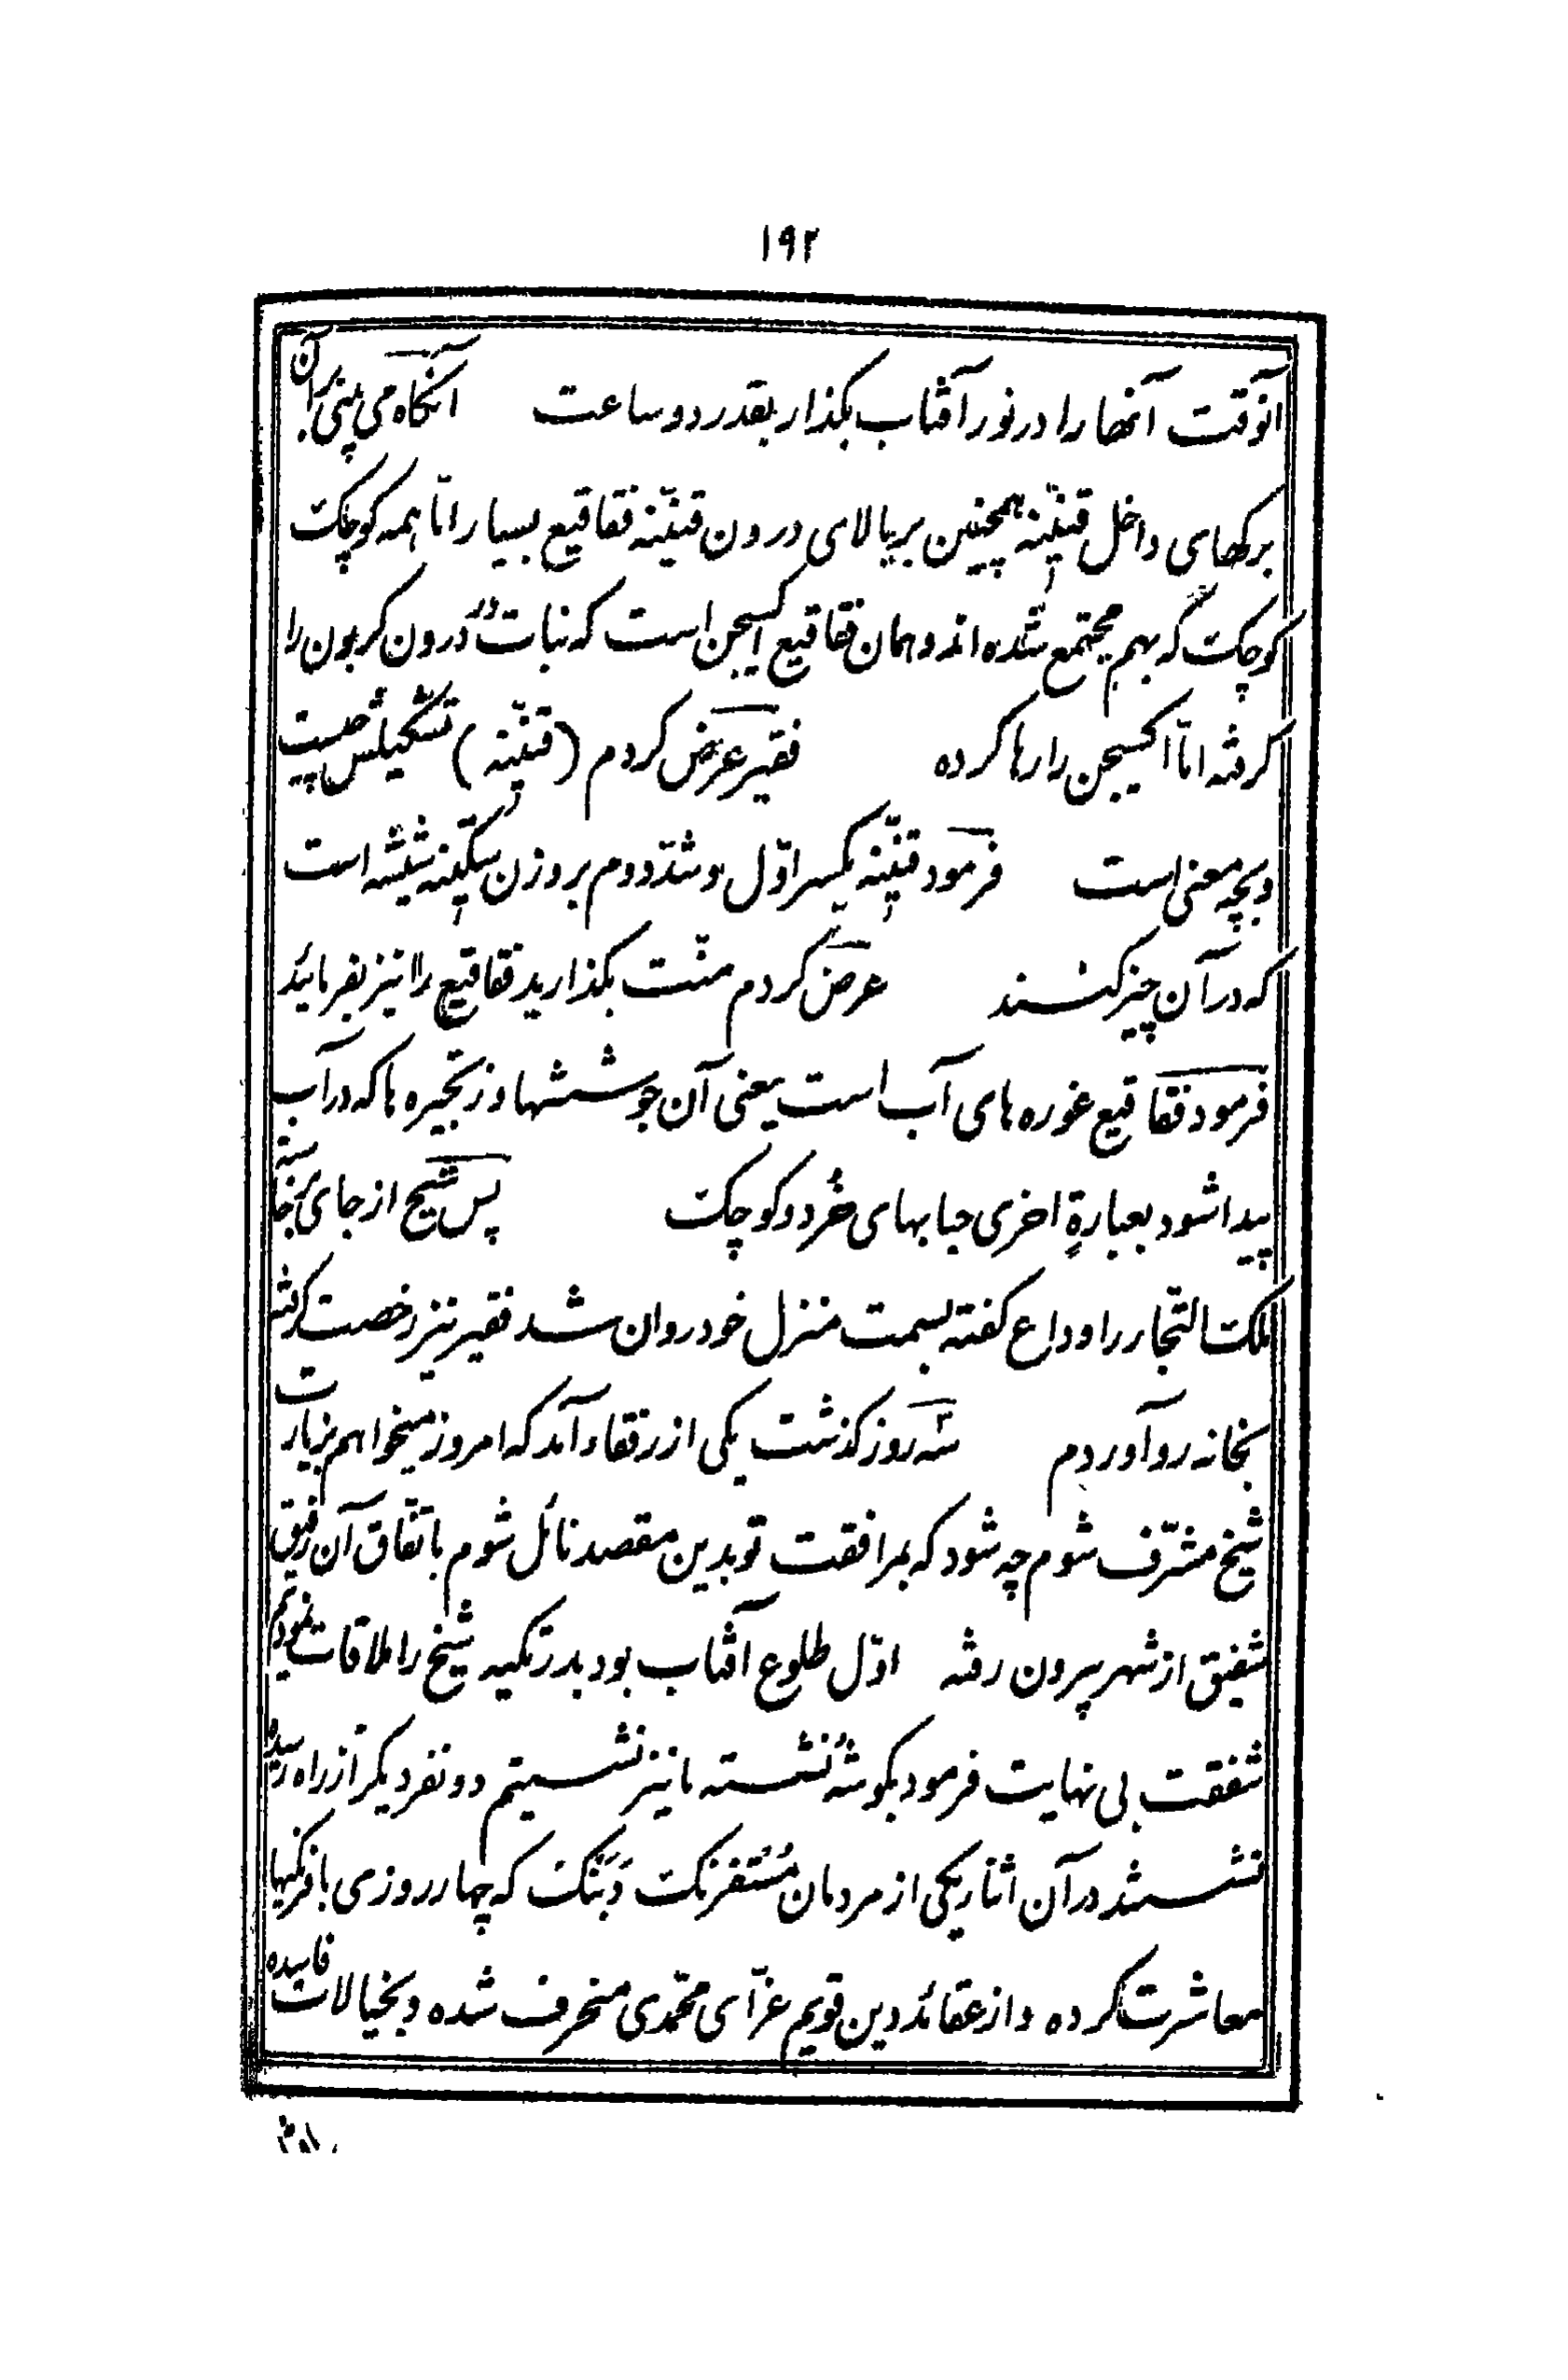 ۱۹۲
آنوقت آنها را در نور آفتاب بکذار بقدر دو ساعت آنکاه می بینی بر آن
برکهای داخل قنّینه همچنین بر بالای درون قنّینه فقاقیع بسیار امّا همه کوچک
کوچک که بهم مجتمع شده اند و همان فقاقیع اکسیجن است که نبات در درون کربون را
کرفته امّا اکسیجن را رها کرده فقیر عرض کردم (قنّینه) تشکیلش چیست
و بچه معنی است فرمود قنّینه بکسر اوّل و شدّ دوم بر وزن سکّینه شیشه است
که در آن چیز کنند عرض کردم منّت بکذارید فقاقیع را نیز بفرمائید
فرمود فقاقیع غوره های آب است یعنی آن جوششها و زنجیره ها که در آب
پیدا شود بعبارةٍ اخری حبابهای خُرد و کوچک پس شیخ از جای برخاسته
ملک التجّار را وداع کفته بسمت منزل خود روان شد فقیر نیز رخصت کرفته
بخانه رو آوردم سه روز کذشت یکی از رفقاء آمد که امروز میخواهم بزیارت
شیخ مشرّف شوم چه شود که بمرافقت تو بدین مقصد نائل شوم باتّفاق آن رفیق
شفیق از شهر بیرون رفته اوّل طلوع آفتاب بود بدر تکیه شیخ را ملاقات نمودیم
شفقت بی نهایت فرمود بکوشهٔ نشسته ما نیز نشستیم دو نفر دیکر از راه رسیده
نشستند در آن اثنا یکی از مردمان مُتفرنک دَبَنْک که چهار روزی با فرنکیها
معاشرت کرده و از عقائد دین قویم غرّای محمّدی منحرف شده و بخیالات فاسده